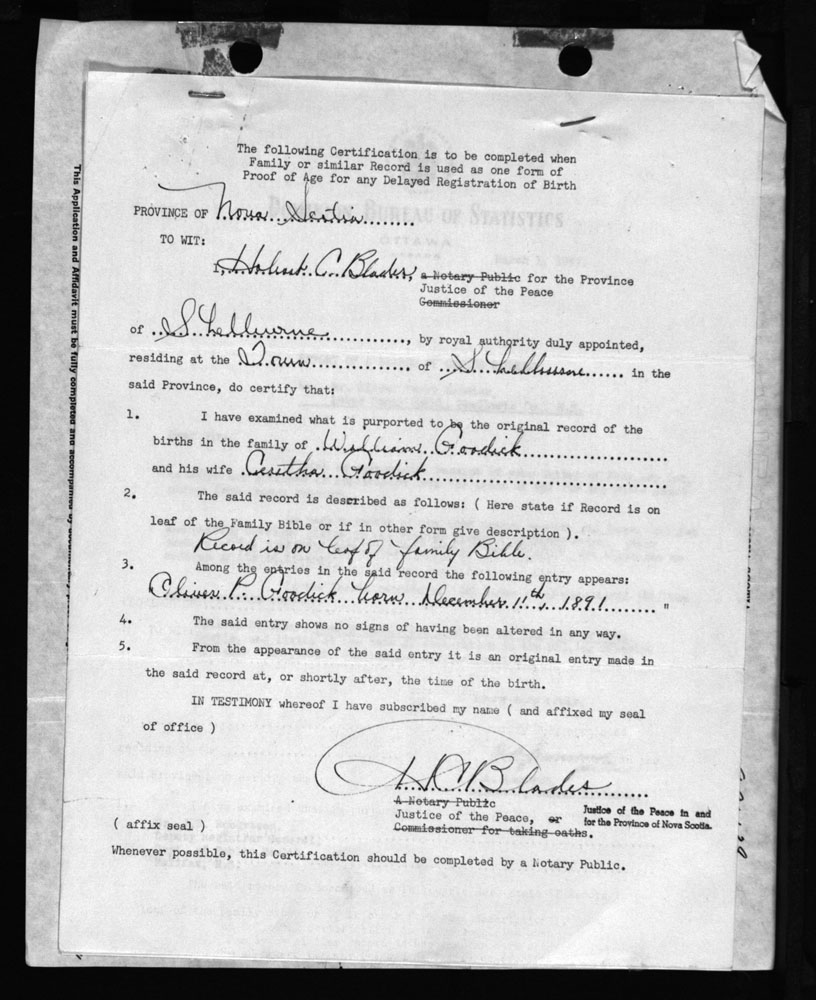 The following Certification is to be completed when
Family or similar Record is used as one form of
Proof of Age for any Delayed Registration of Birth
PROVINCE OF Nova Scotia
BUREAU OF STATISTICS
OTTAWA
TO WIT:
I, C. Blades, a Notary Public for the Province
Justice of the Peace
Commissioner
of Shelburne, by royal authority duly appointed,
residing at the Town of Shelburne in the
said Province, do certify that:
1. I have examined what is purported to be the original record of the
births in the family of William Goodick
and his wife Goodick
2. The said record is described as follows: ( Here state if Record is on
leaf of the Family Bible or if in other form give description ).
Record is on leaf of family Bible.
3. Among the entries in the said record the following entry appears:
Oliver P. Goodick born December 11th, 1891 "
4. The said entry shows no signs of having been altered in any way.
5. From the appearance of the said entry it is an original entry made in
the said record at, or shortly after, the time of the birth.
IN TESTIMONY whereof I have subscribed my name ( and affixed my seal
of office )
H C Blades
A Notary Public
Justice of the Peace, or
Commissioner for taking oaths.
Justice of the Peace in and
for the Province of Nova Scotia.
( affix seal )
Whenever possible, this Certification should be completed by a Notary Public.
This Application and Affidavit must be fully completed and accompanied by